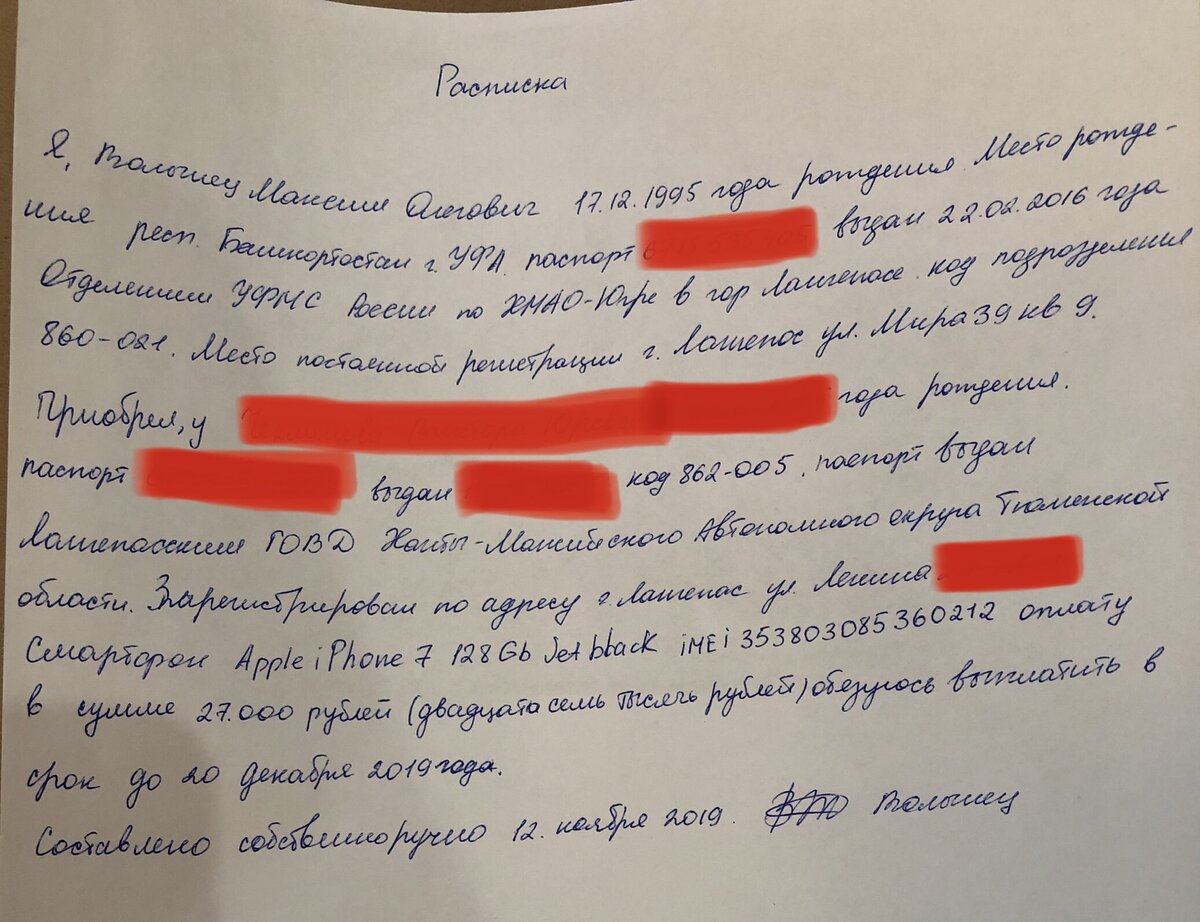 Расписка
Я, Волынец Максим Олегович 17.12.1995 года рождения. Место рожде-
ния респ. Башкортостан г. УФА. паспорт выдан 22.02.2016 года
Отделением УФМС России по ХМАО-Югре в гор Лангепасе. код подразделения
860-021. Место постоянной регистрации г. Лангепас ул. Мира 39 кв 9.
Приобрел, у года рождения.
паспорт выдан код 862-005. паспорт выдан
Лангепасским ГОВД Ханты-Мансийского Автономного округа Тюменской
области. Зарегистрирован по адресу г. Лангепас ул. Ленина
Смартфон Apple iPhone 7 128Gb Jet bback iMEi 353803085360212 оплату
в сумме 27.000 рублей (двадцата семь тысячь рублей) обезуюсь выплатить в
срок до 20 декабря 2019 года.
Составлено собственноручно 12. ноября 2019. Волынец